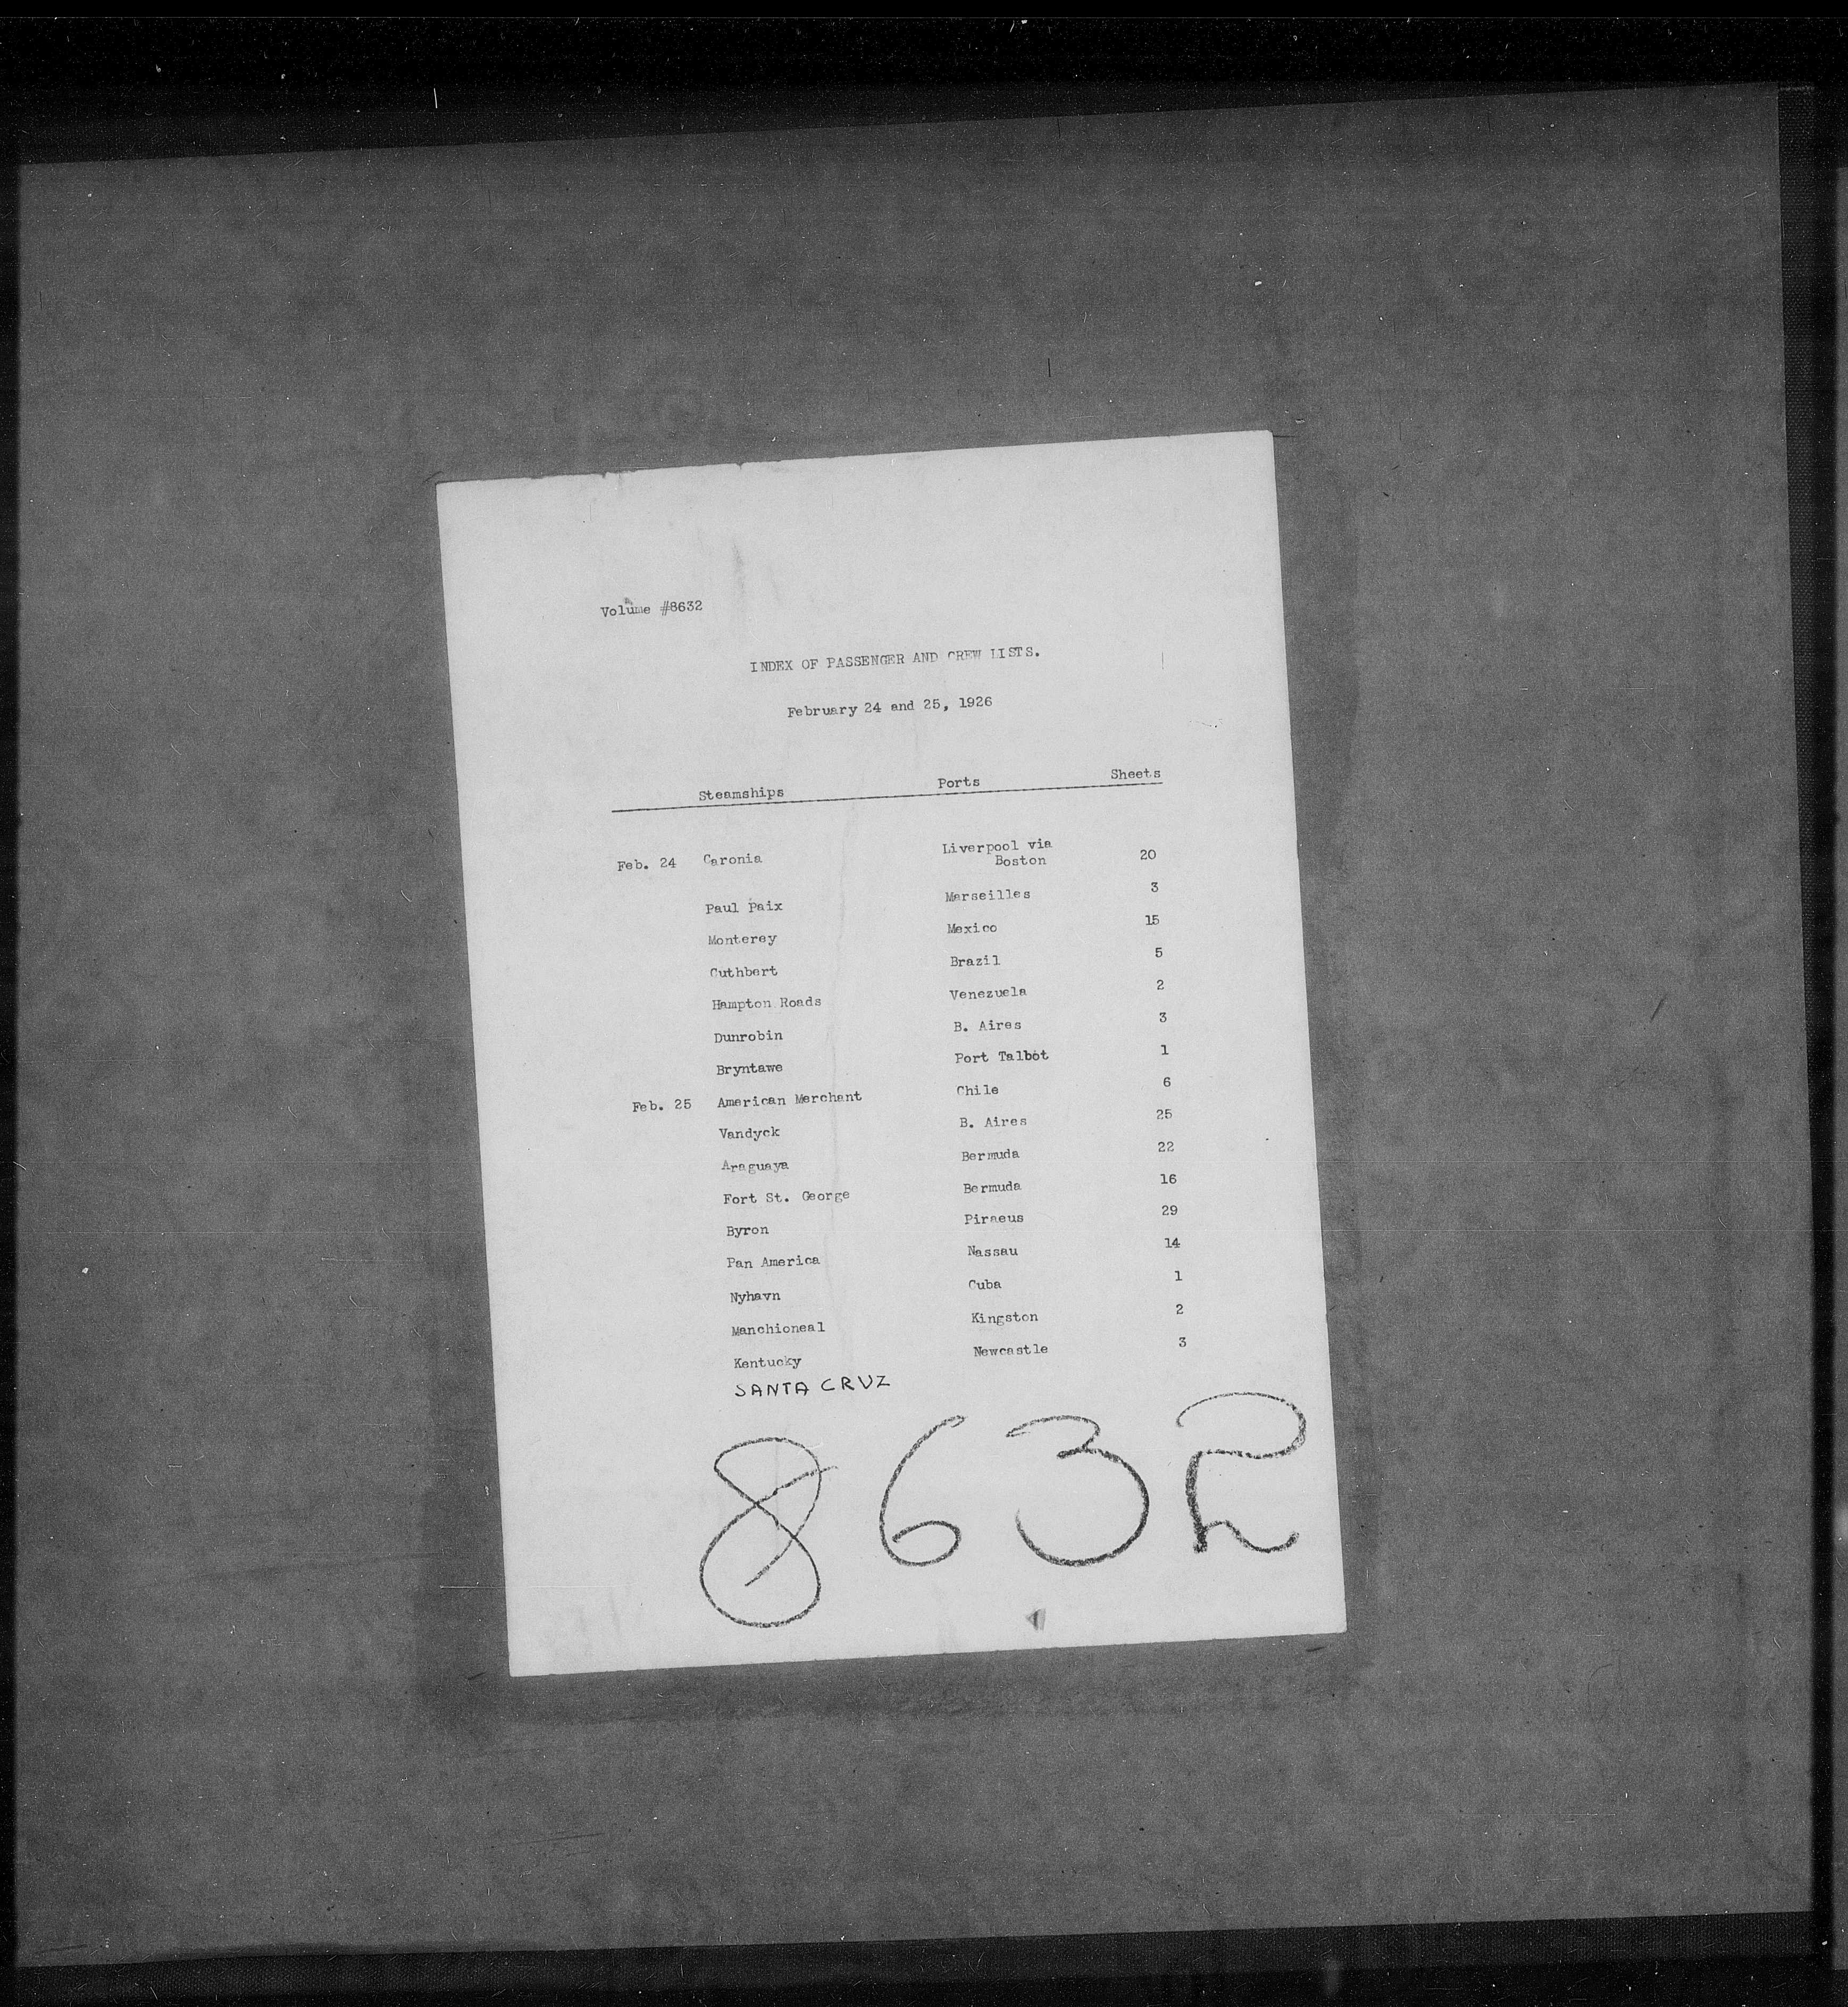 Volume #8632
INDEX OF PASSENGER AND CREW LISTS.
February 24 and 25, 1926
Steamships Ports Sheets
Feb. 24 Caronia Liverpool via Boston 20
Paul Paix Marseilles 3
Monterey Mexico 15
Cuthbert Brazil 5
Hampton Roads Venezuela 2
Dunrobin B. Aires 3
Bryntawe Port Talbot 1
Feb. 25 American Merchant Chile 6
Vandyck B. Aires 25
Araguaya Bermuda 22
Fort St. George Bermuda 16
Byron Piraeus 29
Pan America Nassau 14
Nyhavn Cuba 1
Manchioneal Kingston 2
Kentucky Newcastle 3
SANTA CRUZ
8632